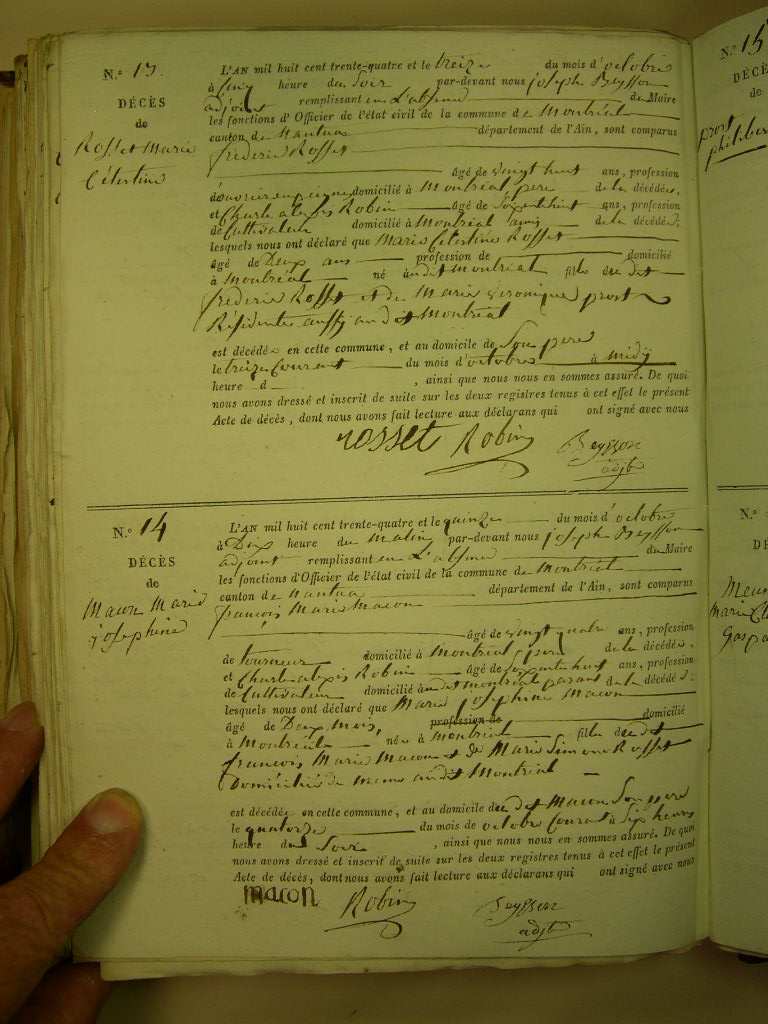 N.° 13.
DÉCÈS
de
Rosset Marie
Célestine
L'AN mil huit cent trente-quatre et le treize du mois d'octobre
à cinq heure du Soir par-devant nous joseph Beysson
adjoint remplissant en L'absence du Maire
les fonctions d'Officier de l'état civil de la commune de Montréal
canton de Nantua département de l'Ain, sont comparus
frederic Rosset
âgé de vingt huit ans, profession
d'ouvrier en peigne domicilié à Montréal pere de la décédée,
et Charle alexis Robin âgé de soixante huit ans, profession
de Cultivateur domicilié à Montréal amis de la décédée;
lesquels nous ont déclaré que Marie Célestine Rosset
âgé de Deux ans profession de domicilié
à Montréal né audit Montréal fille du dit
frederic Rosset et de Marie veronique prost
Résidents aussy audit Montréal
est décédée en cette commune, et au domicile de Son pere
le treize Courant du mois d'octobre à midÿ
heure d , ainsi que nous nous en sommes assuré. De quoi
nous avons dressé et inscrit de suite sur les deux registres tenus à cet effet le présent
Acte de décès, dont nous avons fait lecture aux déclarans qui ont signé avec nous
rosset Robin Beysson
adjt
N.° 14
DÉCÈS
de
Macon Marie
josephine
L'AN mil huit cent trente-quatre et le quinze du mois d'octobre
à Dix heure du Matin par-devant nous joseph Beysson
adjoint remplissant en L'absence du Maire
les fonctions d'Officier de l'état civil de la commune de Montréal
canton de Nantua département de l'Ain, sont comparus
françois Marie Macon
âgé de vingt quatre ans, profession
de tourneur domicilié à Montréal pere de la décédée,
et Charle alexis Robin âgé de soixante huit ans, profession
de Cultivateur domicilié audit montréal parant de la décédée;
lesquels nous ont déclaré que Marie josephine Macon
âgé de Deux Mois, profession de domicilié
à Montréal née à Montréal fille du dit
francois Marie Macon et de Marie Simone Rosset
Domiciliés de meme audit Montréal
est décédée en cette commune, et au domicile du dit Macon Son pere
le quatorze du mois de octobre Courent à Six heures
heure du Soir , ainsi que nous nous en sommes assuré. De quoi
nous avons dressé et inscrit de suite sur les deux registres tenus à cet effet le présent
Acte de décès, dont nous avons fait lecture aux déclarans qui ont signé avec nous
macon Robin Beysson
adjt
N.° 15
DÉCÈS
de
prost
philiber
N.°